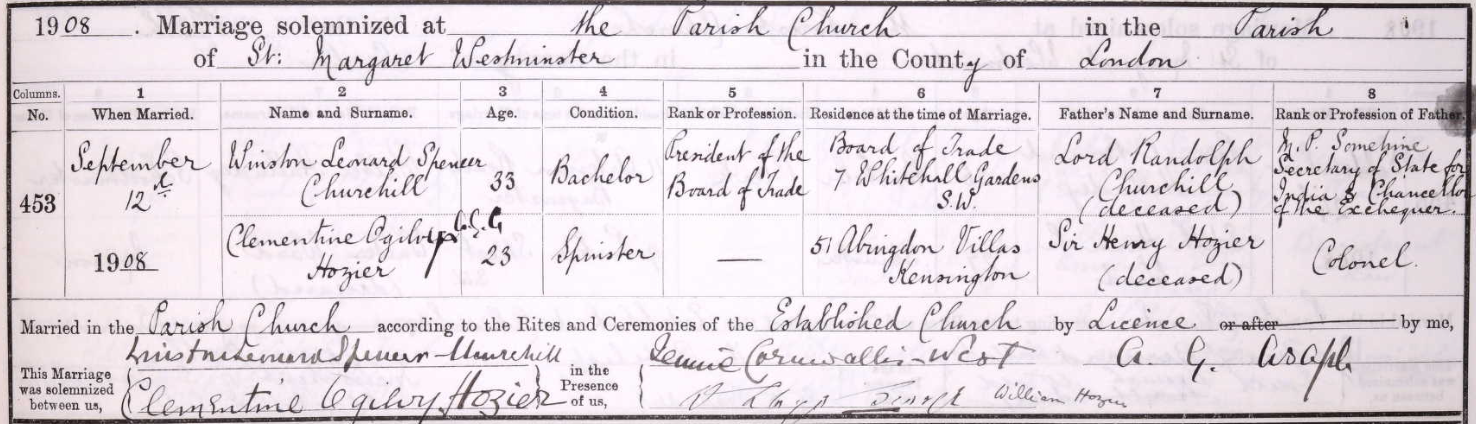 1908. Marriage solemnized at the Parish Church in the Parish
of St: Margaret Westminster in the County of London
Columns. 1 2 3 4 5 6 7 8
No. When Married. Name and Surname. Age. Condition. Rank or Profession. Residence at the time of Marriage. Father's Name and Surname. Rank or Profession of Father.
453
September
12th
1908
Winston Leonard Spencer
Churchill
33
Bachelor
President of the
Board of Trade
Board of Trade
7 Whitehall Gardens
S.W.
Lord Randolph
Churchill
(deceased)
M.P. Sometime
Secretary of State for
India & Chancellor
of the Exchequer.
Clementine Ogilvy
Hozier
23
Spinster
—
51 Abingdon Villas
Kensington
Sir Henry Hozier
(deceased)
Colonel.
Married in the Parish Church according to the Rites and Ceremonies of the Established Church by Licence or after by me,
This Marriage
was solemnized
between us,
Winston Leonard Spencer-Churchill
Clementine Ogilvy Hozier
in the
Presence
of us,
Jennie Cornwallis-West
D Lloyd George William Hozier
A. G. Asaph